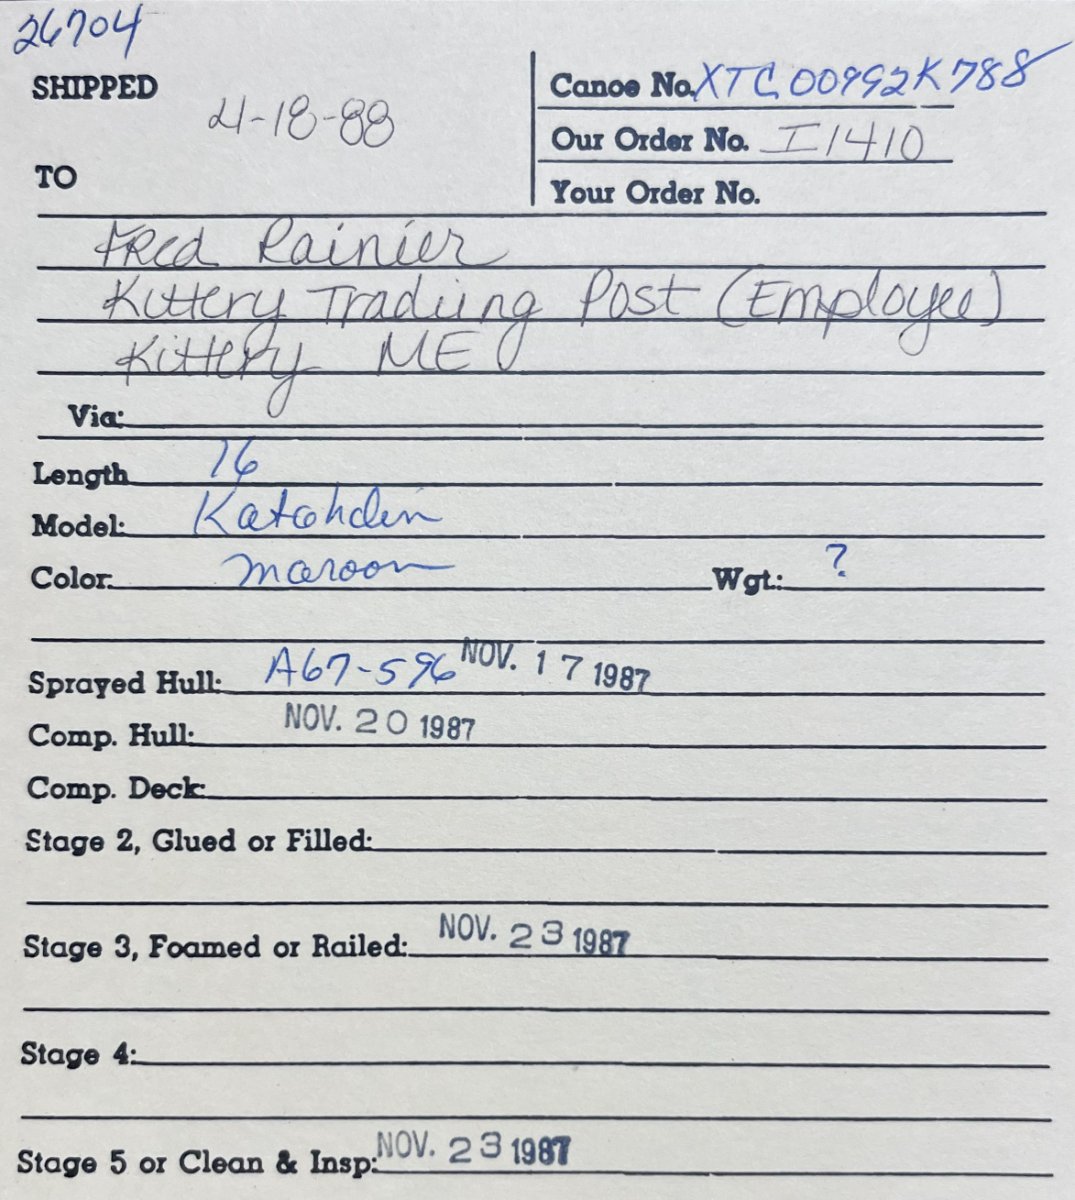 26704
SHIPPED 4-18-88
Canoe No. XTC 00992K788
Our Order No. I1410
TO
Your Order No.
Fred Rainier
Kittery Trading Post (Employee)
Kittery ME
Via:
Length 16
Model: Katahdin
Color: maroon Wgt.: ?
Sprayed Hull: A67-596 NOV. 17 1987
Comp. Hull: NOV. 20 1987
Comp. Deck:
Stage 2, Glued or Filled:
Stage 3, Foamed or Railed: NOV. 23 1987
Stage 4:
Stage 5 or Clean & Insp: NOV. 23 1987